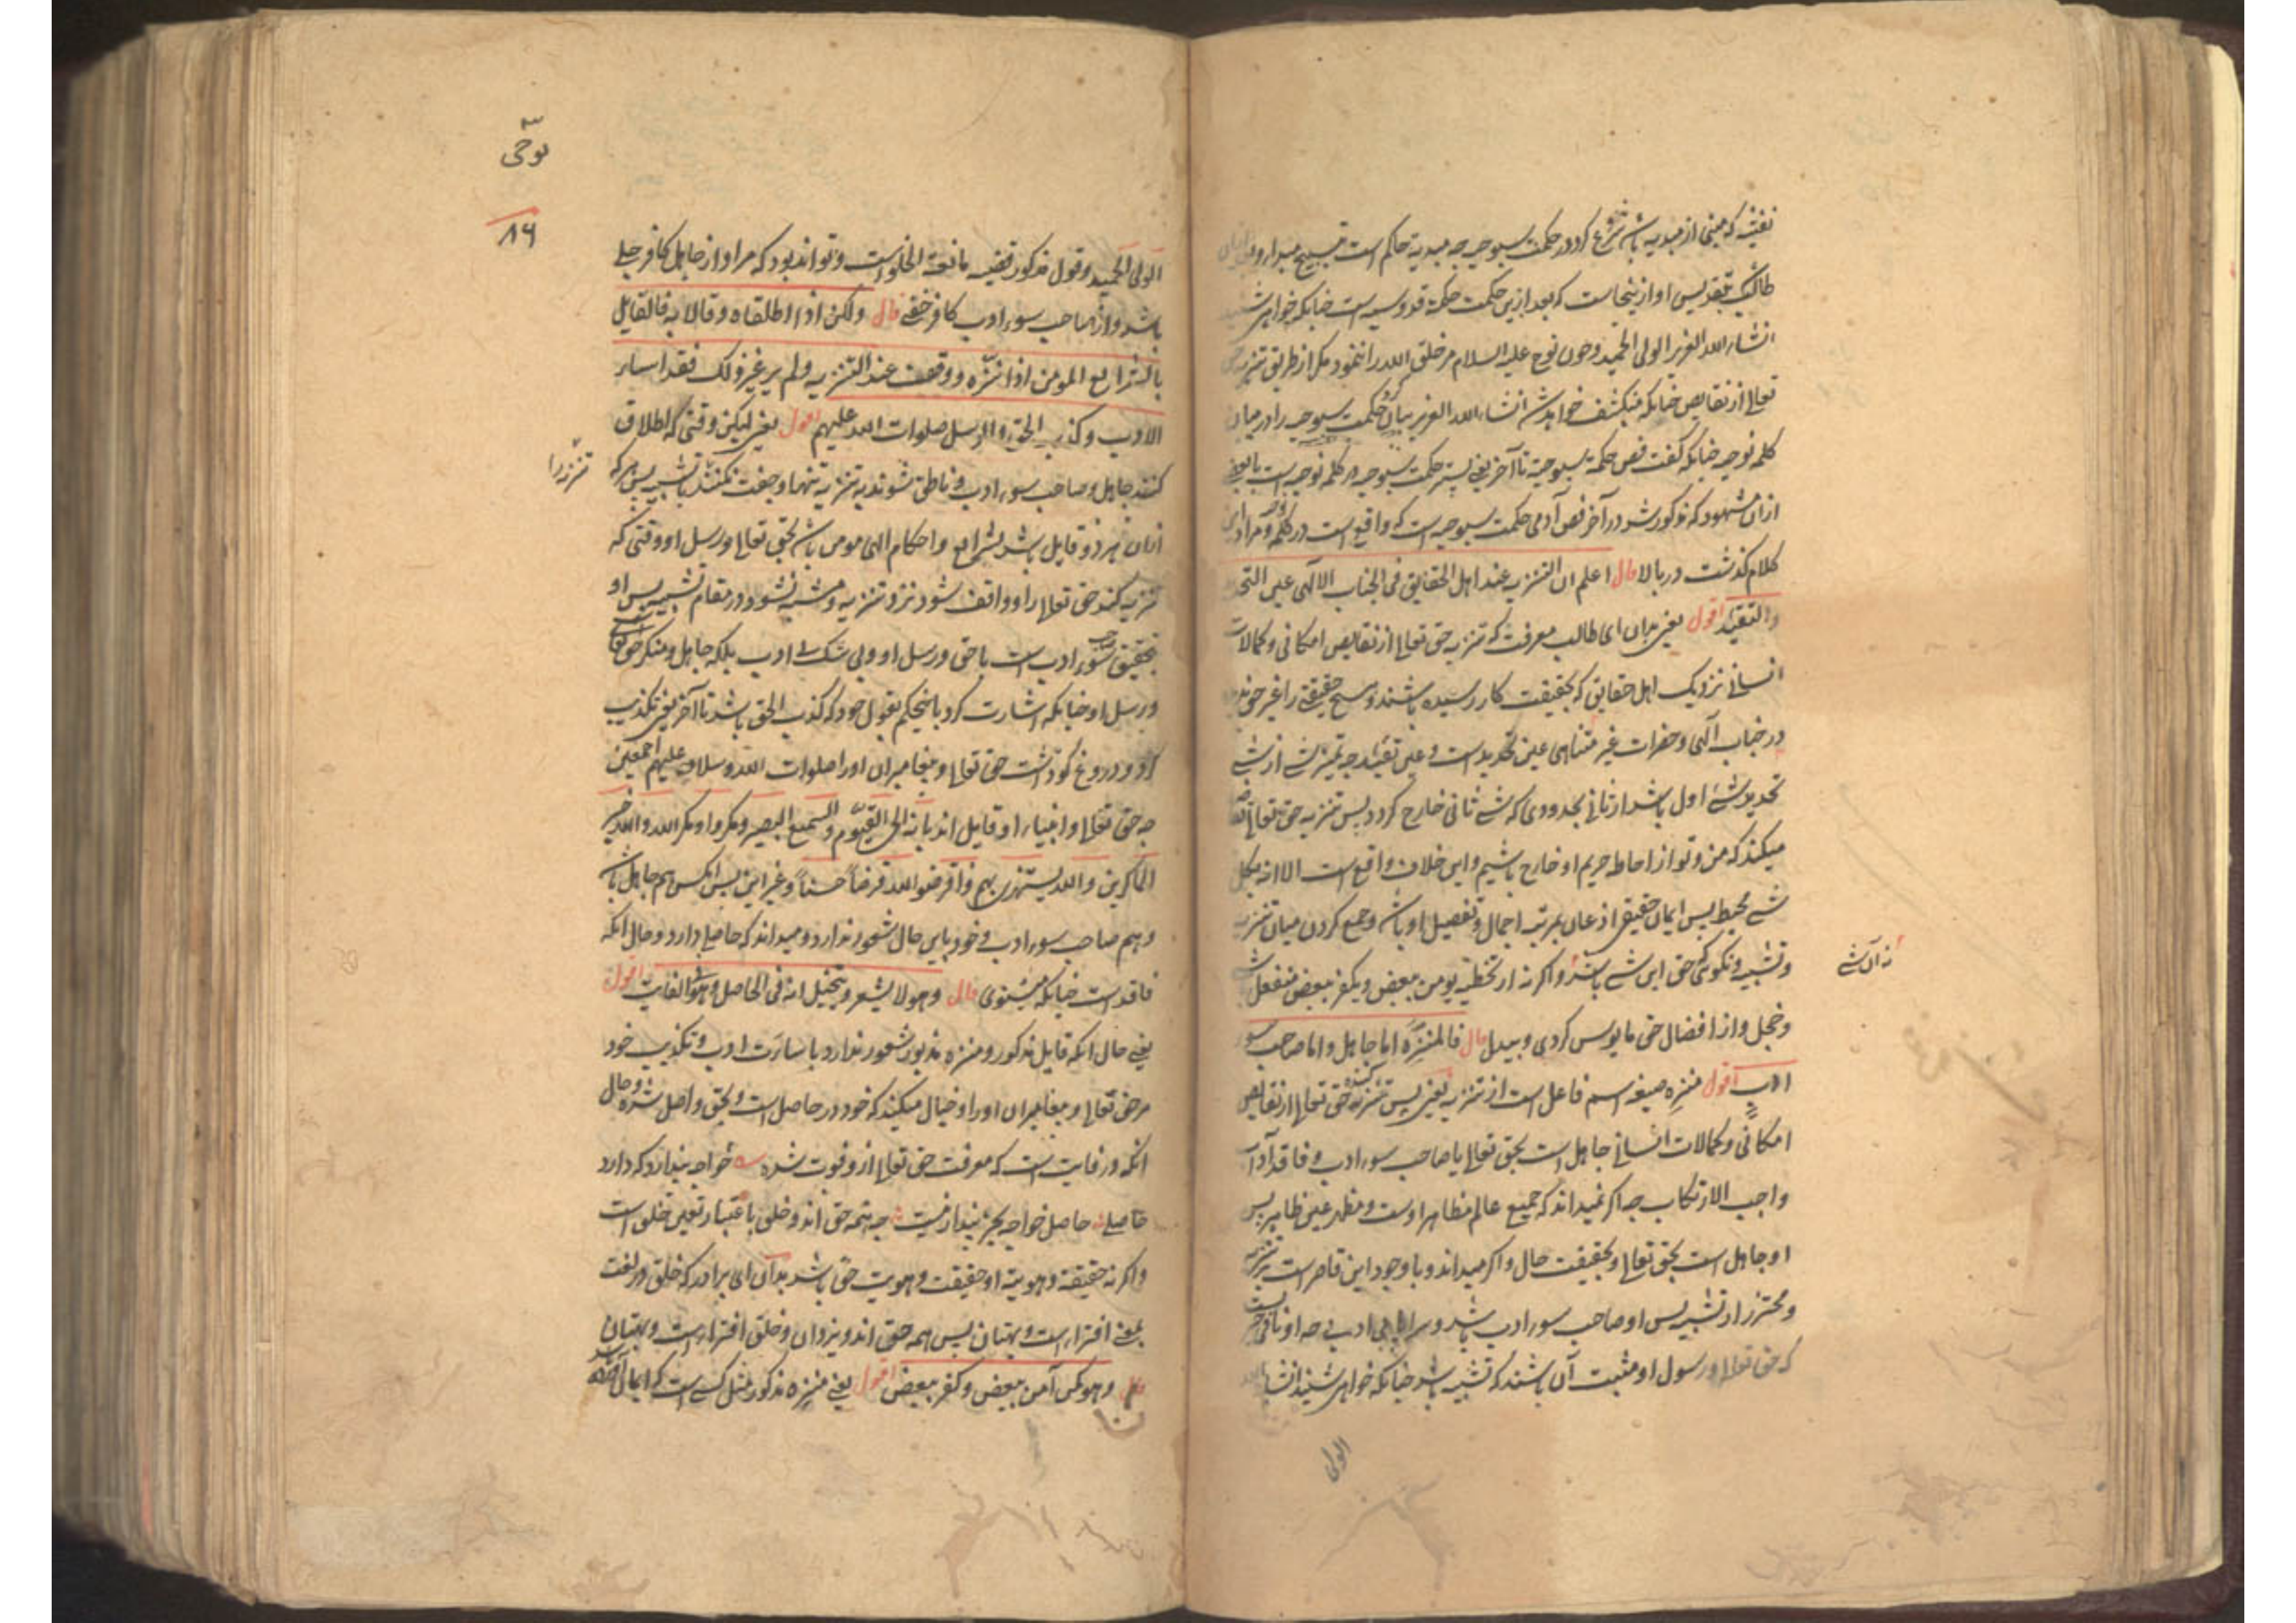 که مبنی از مبدیه باشد شرع کردد در حکمت سبوحیه چه مبدیه حاکم است تسبیح مبدا را
طالب تقدیس او ازینجاست که بعد ازین حکمت حکمة قدوسیه است چنانکه خواهی شنید
انشاء الله العزیز الولی الحمید و چون نوح علیه السلام مر خلق الله را ننمود مکر از طریق تنزیه حق
تعالی از نقایص چنانکه منکشف خواهد شد انشاء الله العزیز بیان کرد حکمت سبوحیه را در میان
کلمه نوحیه چنانکه کفت فص حکمة سبوحیة تا آخر یعنی حکمت سبوحیه در کلمه نوحیه است یا یعنی
ازان مشهود که مذکور شد در آخر فص آدمی حکمت سبوحیه است که واقع است در کلمه و مراد از این
کلام کذشت در بالا قال اعلم ان التنزیه عند اهل الحقایق فی الجناب الالهی عین التحدید
والتقیید اقول یعنی بدان ای طالب معرفت که تنزیه حق تعالی از نقایص امکانی و کمالات
انسانی نزدیک اهل حقایق که بحقیقت کار رسیده باشند و هیچ حقیقتی را غیر حق
در جناب آلهی و حضرات غیر متناهی عین تحدید است و عین تقیید چه تمیز شی از شی
تحدید شی اول باشد از ثانی بحدودی که شی ثانی خارج کردد پس تنزیه حق تعالی
میکند که من و تو از احاطه حریم او خارج باشیم و این خلاف واقع است الا انه بکل
شی محیط پس ایمان حقیقی اذعان بمرتبه اجمال و تفصیل او باشد و جمع کردن میان تنزیه
و تشبیه و نکوئی حق این شی باشد و اکرنه از تخطیه یومن ببعض و یکفر ببعض منفعل
نه آن شی
و خجل و از افضال حق مایوس کردی و بیدل قال فالمنزه اما جاهل و اما صاحب سوء
الادب اقول منزه صیغه اسم فاعل است از تنزیه یعنی پس تنزیه کننده حق تعالی از نقایص
امکانی و کمالات انسانی جاهل است بحق تعالی یا صاحب سوء ادب و فاقد آداب
واجب الارتکاب چه اکر نمیداند که جمیع عالم مظاهر اوست و مظهر عین ظاهر پس
او جاهل است بحق تعالی و بحقیقت حال و اکر میداند و با وجود این قاصر است بر تنزیه
و محترز از تشبیه پس او صاحب سوء ادب باشد و سراپا بی ادبی چه او نافی چیزیست
که حق تعالی و رسول او مثبت آن باشند که تشبیه باشد چنانکه خواهی شنید انشاء الله
الولی
نوحی
۱۶
الولی الحمید و قول مذکور قضیه مانعة الخلو است و تواند بود که مراد از جاهل کافر جلی
باشد و از صاحب سوء ادب کافر خفی قال ولکن اذا اطلقاه وقالا به فالقایل
بالشرایع المومن اذا نزه ووقف عند التنزیه ولم یر غیر ذلک فقد اساء
الادب وکذب الحق والرسل صلوات الله علیهم اقول یعنی لیکن وقتی که اطلاق
تنزیه را
کنند جاهل و صاحب سوء ادب و ناطق شوند به تنزیه تنها و جفت نکنند با تشبیه پس هر که
ازان هر دو قایل باشد بشرایع و احکام الهی مومن باشد بحق تعالی و رسل او وقتی که
تنزیه کند حق تعالی را و واقف شود نزد تنزیه و مشبه نشود در مقام تشبیه پس او
بتحقیق سوء ادب است با حق و رسل او و بی شک بی ادب بلکه جاهل و منکر حق تعالی
و رسل او چنانکه اشارت کرد باینحکم بقول خود که کذب الحق باشد تا آخر یعنی تکذیب
کرد و دروغ کو داشت حق تعالی و پیغامبران او را صلوات الله و سلامه علیهم اجمعین
چه حق تعالی و انبیاء او قایل اند بانه الحی القیوم والسمیع البصیر ومکروا ومکر الله والله خیر
الماکرین والله یستهزئ بهم واقرضوا الله قرضا حسنا و غیر این پس این کس هم جاهل باشد
و هم صاحب سوء ادب و خود باین حال شعور ندارد و میداند که حاصل دارد و حال آنکه
فاقد است چنانکه میشنوی قال وهو لا یشعر ویتخیل انه فی الحاصل وهو فی الفایت اقول
یعنی حال آنکه قایل مذکور و منزه مذبور شعور ندارد باساءت ادب و تکذیب خود
مر حق تعالی و پیغامبران او را و خیال میکند که خود در حاصل است و بحق واصل شده و حال
آنکه در فایت است که معرفت حق تعالی از و فوت شده خواجه پندارد که دارد
حاصلی حاصل خواجه بجز پندار نیست چه همه حق اند و خلق باعتبار تعین خلق است
و اکرنه حقیقة و هویته او حقیقت و هویت حق باشد بدان ای برادر که خلق در لغت
بمعنی افتراء است و بهتان پس همه حق اند و یزدان و خلق افتراء است و بهتان
قال وهو کمن آمن ببعض وکفر ببعض اقول یعنی منزه مذکور مثل کسی است که ایمان آورد